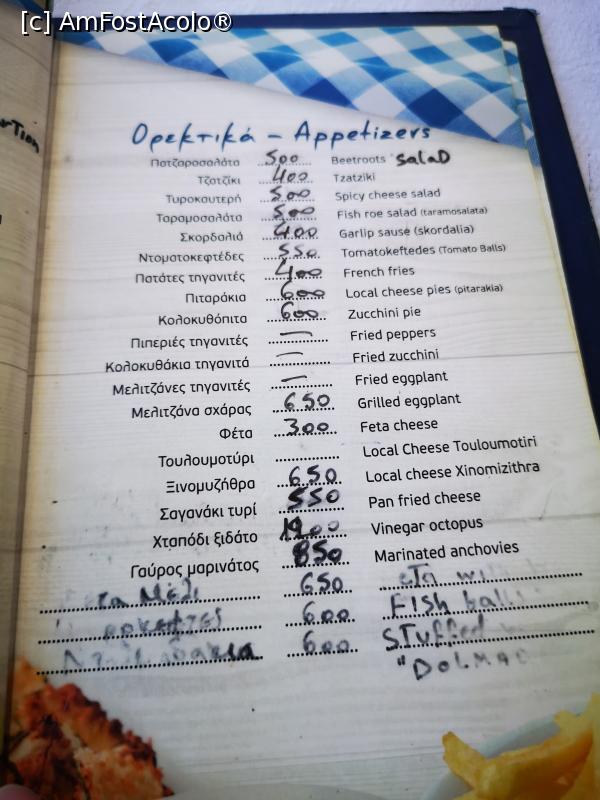 [c] AmFostAcolo®
Ορεκτικά - Appetizers
Παтζαροσαλάτα 500 Beetroots salad
Τζατζίκι 400 Tzatziki
Τυροκαυτερή 500 Spicy cheese salad
Ταραμοσαλάτα 500 Fish roe salad (taramosalata)
Σκορδαλιά 400 Garlip sause (skordalia)
Ντοματοκεφτέδες 550 Tomatokeftedes (Tomato Balls)
Πατάτες τηγανιτές 400 French fries
Πιταράκια 600 Local cheese pies (pitarakia)
Κολοκυθόπιτα 600 Zucchini pie
Πιπεριές τηγανιτές — Fried peppers
Κολοκυθάκια τηγανιτά — Fried zucchini
Μελιτζάνες τηγανιτές — Fried eggplant
Μελιτζάνα σχάρας 650 Grilled eggplant
Φέτα 300 Feta cheese
Τουλουμοτύρι Local Cheese Touloumotiri
Ξινομυζήθρα 650 Local cheese Xinomizithra
Σαγανάκι τυρί 550 Pan fried cheese
Χταπόδι ξιδάτο 1200 Vinegar octopus
Γαύρος μαρινάτος 850 Marinated anchovies
Μέλι 650
600 Fish balls
600 STuffed
"DOLMA